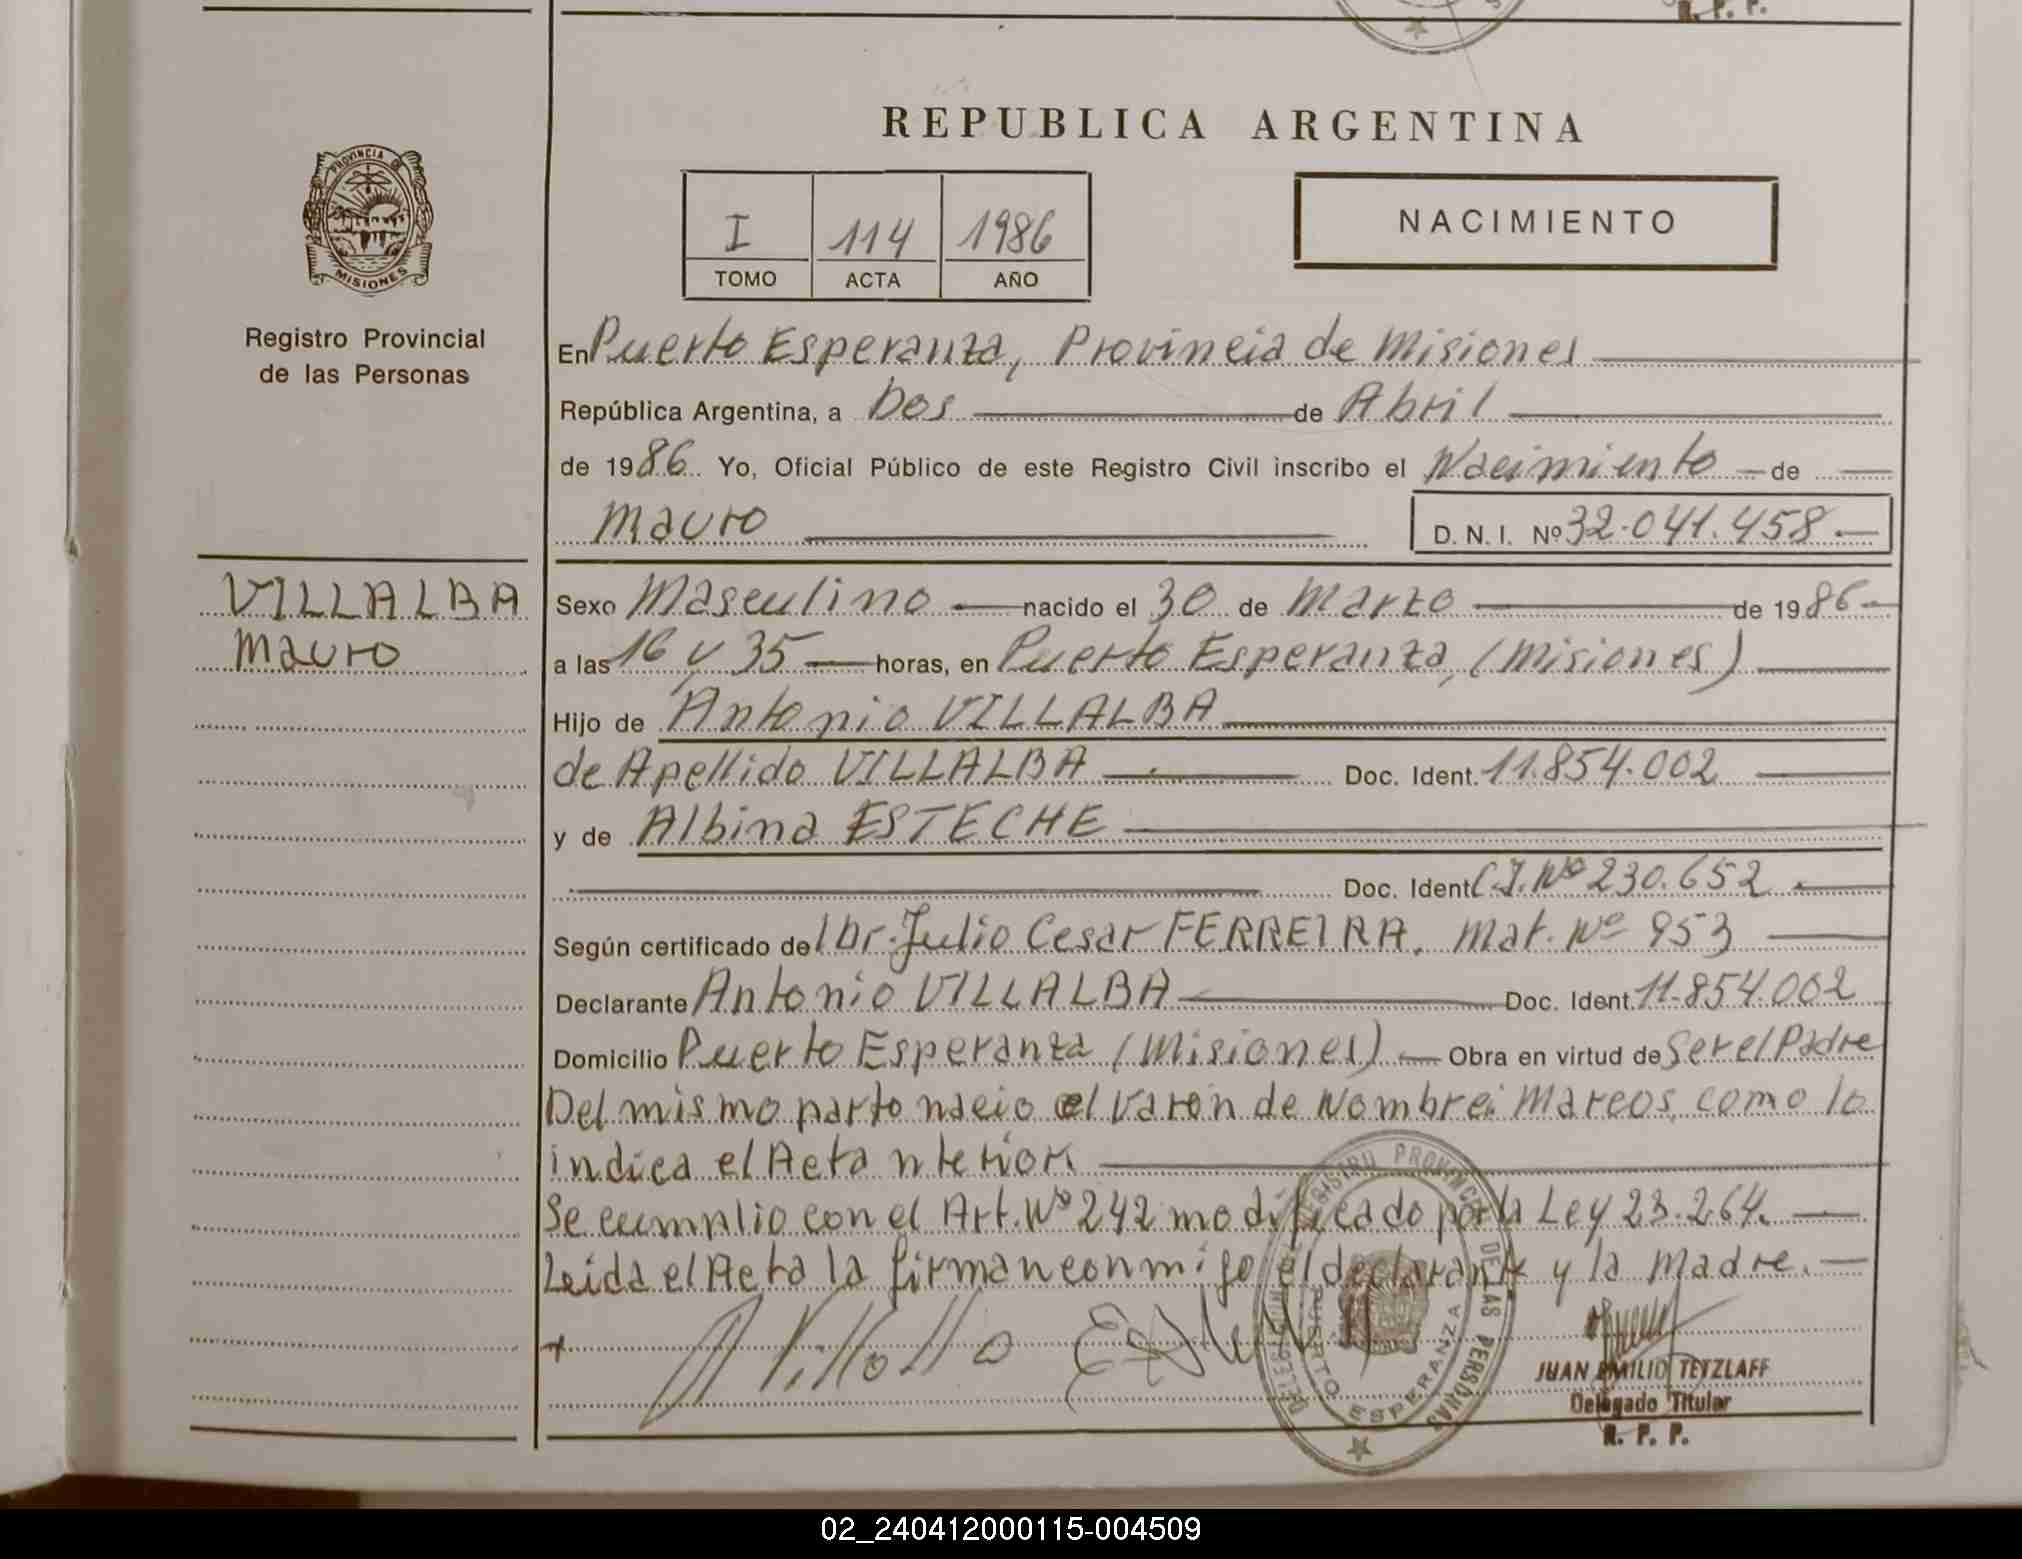 R. P. P.
REPUBLICA ARGENTINA
PROVINCIA DE
MISIONES
Registro Provincial
de las Personas
I 114 1986
TOMO ACTA AÑO
NACIMIENTO
En Puerto Esperanza, Provincia de Misiones
República Argentina, a Dos de Abril
de 1986 Yo, Oficial Público de este Registro Civil inscribo el Nacimiento de
Mauro D. N. I. Nº 32.041.458
VILLALBA
Mauro
Sexo Masculino nacido el 30 de Marzo de 1986
a las 16 y 35 horas, en Puerto Esperanza, (Misiones)
Hijo de Antonio VILLALBA
de Apellido VILLALBA Doc. Ident. 11.854.002
y de Albina ESTECHE
Doc. Ident C.I. Nº 230.652
Según certificado del Dr. Julio Cesar FERREIRA. Mat. Nº 953
Declarante Antonio VILLALBA Doc. Ident. 11.854.002
Domicilio Puerto Esperanza (Misiones) Obra en virtud de Ser el Padre
Del mismo parto nacio el Varon de Nombre: Marcos, como lo
indica el Acta nterior.
Se cumplio con el Art. Nº 242 modificado por la Ley 23.264.
Leida el Acta la firman conmigo el declarante y la Madre.
A Villalba
REGISTRO PROVINCIAL DE LAS PERSONAS
PUERTO ESPERANZA
JUAN EMILIO TETZLAFF
Delegado Titular
R. P. P.
02_240412000115-004509